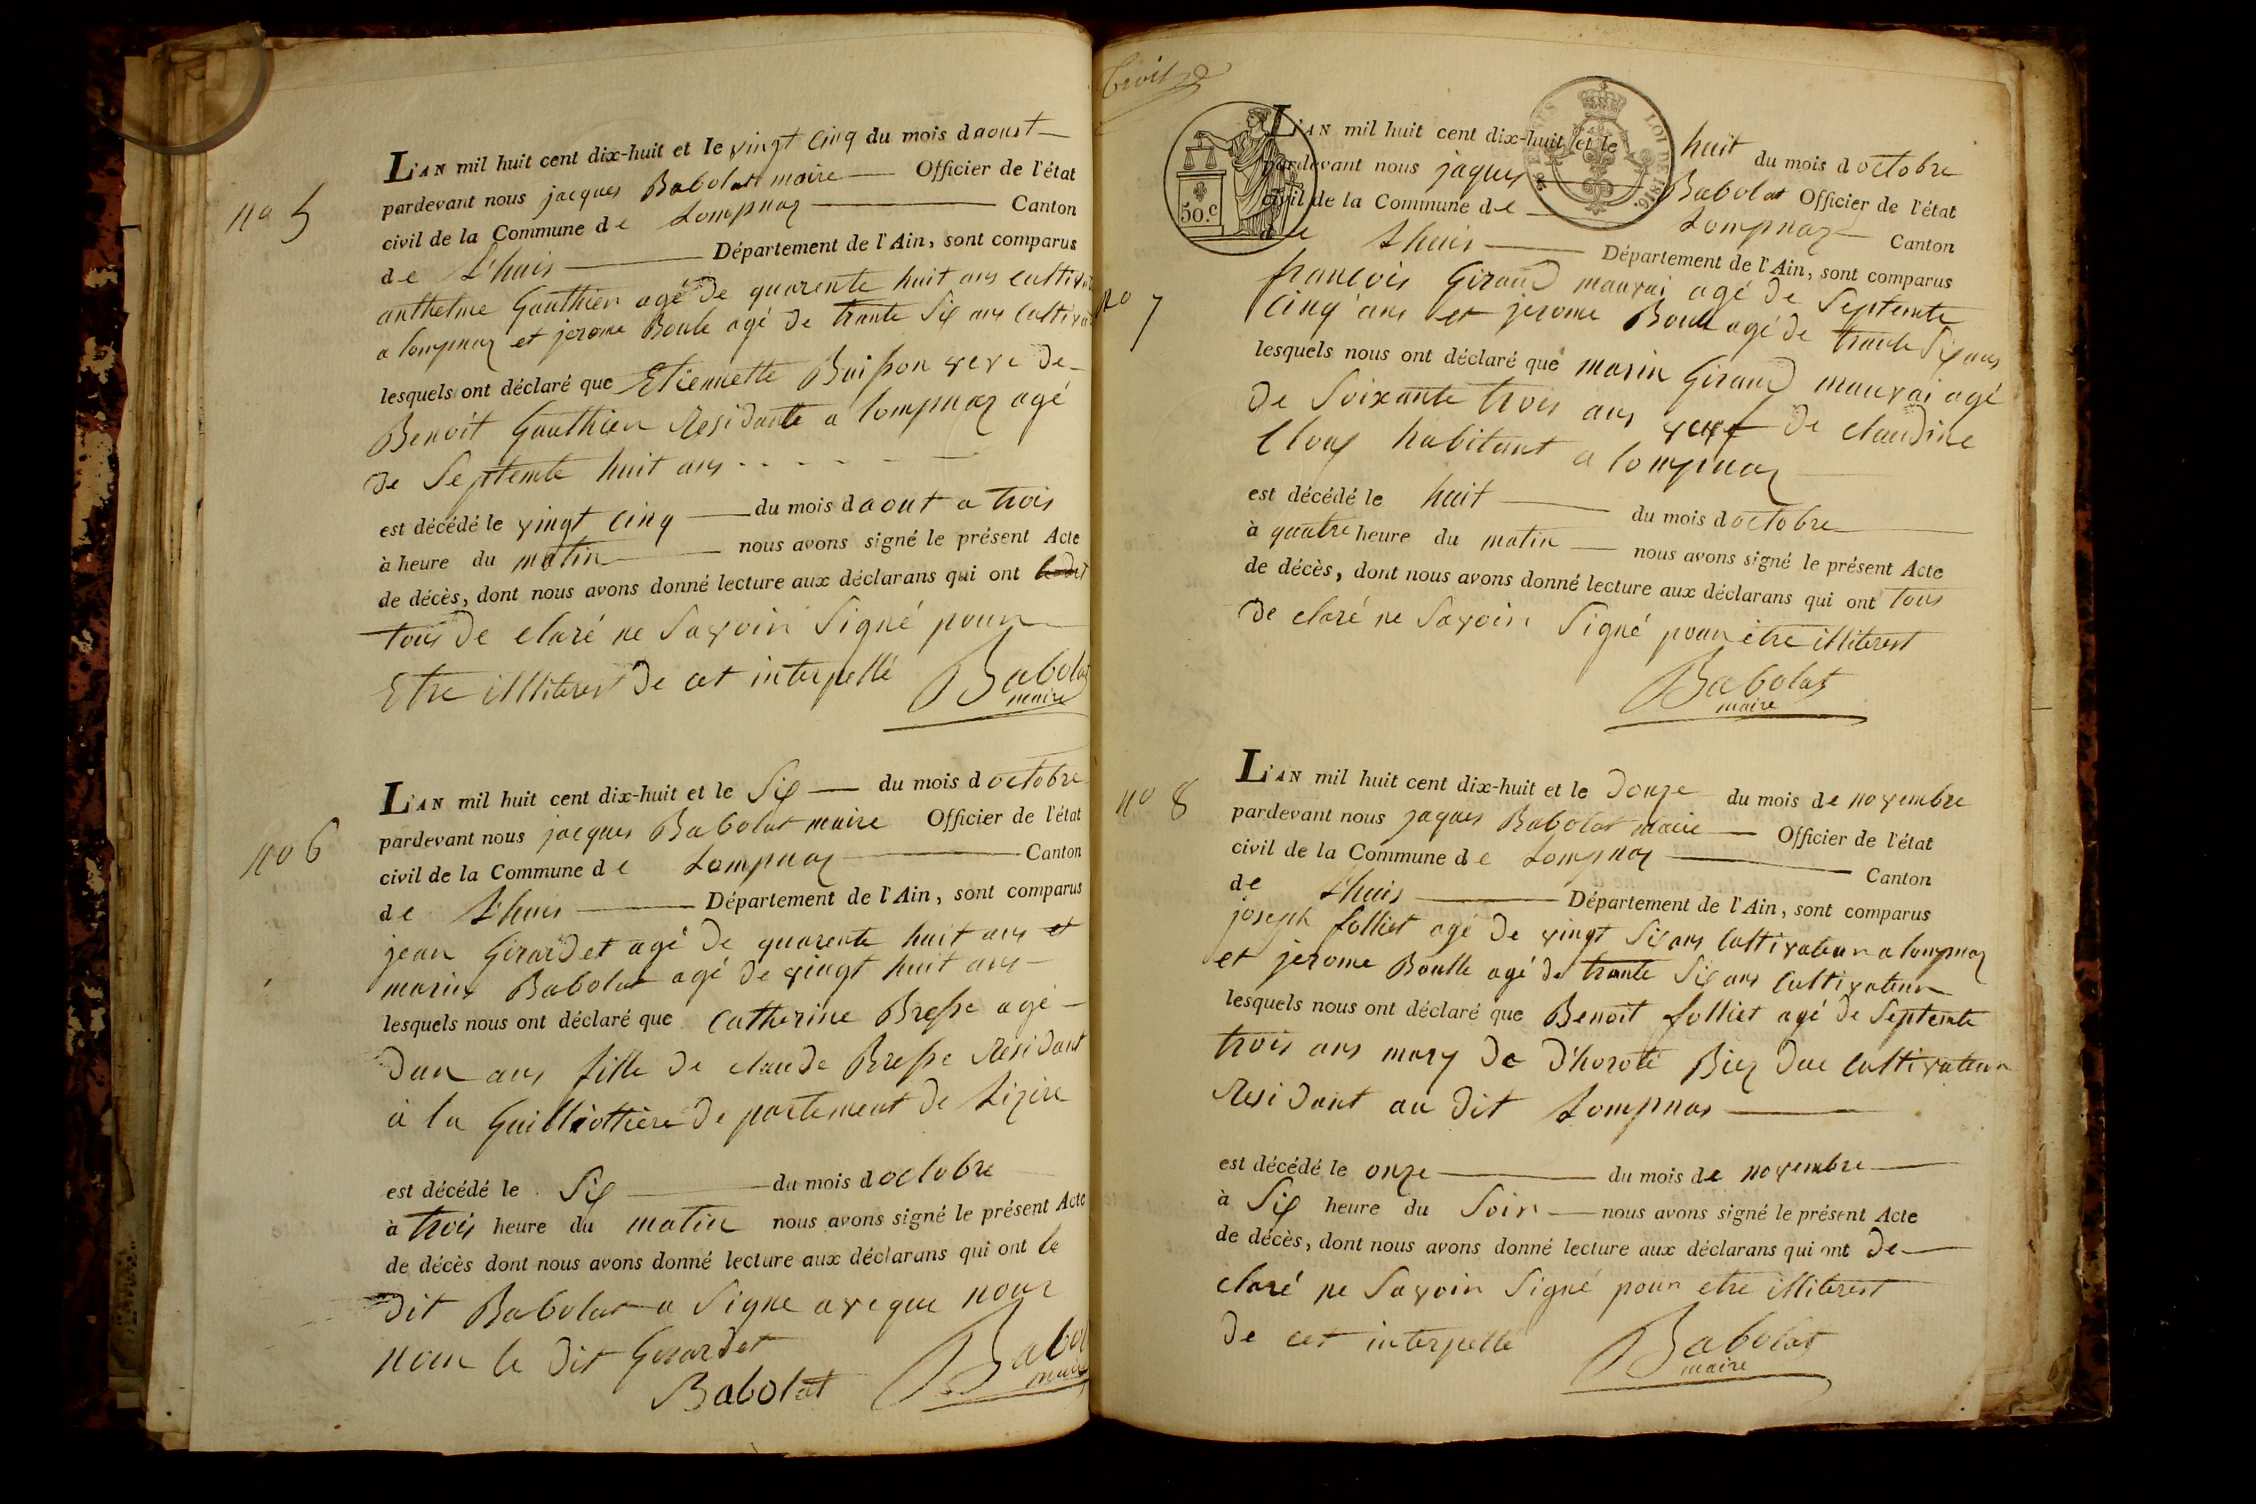 no 5
L'AN mil huit cent dix-huit et le vingt cinq du mois daoust
pardevant nous jacques Babolat maire Officier de l'état
civil de la Commune de Lompnaz Canton
de L'huis Département de l'Ain, sont comparus
anthelme Gauthier agé de quarente huit ans
a lompnaz et jerome Boule agé de trante Six ans
lesquels ont déclaré que Etiennette Buisson veve de
Benoit Gauthier Residante a lompnaz agé
de Septente huit ans
est décédé le vingt cinq du mois daout a trois
à heure du matin nous avons signé le présent Acte
de décès, dont nous avons donné lecture aux déclarans qui ont
tous de claré ne Savoir Signé pour
Etre illiterest de cet interpellé
Babolat
maire
no 6
L'AN mil huit cent dix-huit et le Six du mois doctobre
pardevant nous jacques Babolat maire Officier de l'état
civil de la Commune de Lompnaz Canton
de L'huis Département de l'Ain, sont comparus
jean Girardet agé de quarente huit ans et
marin Babolat agé de vingt huit ans
lesquels nous ont déclaré que Catherine Bresse agé
dun ans fille de claude Bresse Residant
à la Guilliottière de partement de Lizire
est décédé le Six du mois doctobre
à trois heure du matin nous avons signé le présent Acte
de décès dont nous avons donné lecture aux déclarans qui ont le
dit Babolat a Signe aveque nous
non le dit Girardet
Babolat
maire
Babolat
Trois
50.c
LOI DE 1816.
no 7
L'AN mil huit cent dix-huit et le huit du mois doctobre
pardevant nous jaques Babolat Officier de l'état
civil de la Commune de Lompnaz Canton
de Lhuis Département de l'Ain, sont comparus
francois Giraud mauvai agé de Septente
Cinq ans et jerome Boull agé de trante Six ans
lesquels nous ont déclaré que marin Giraud mauvai agé
de Soixante trois ans vevf de claudine
Clous habitant a lompnaz
est décédé le huit du mois doctobre
à quatre heure du matin nous avons signé le présent Acte
de décès, dont nous avons donné lecture aux déclarans qui ont tous
de claré ne Savoir Signé pour être illiterest
Babolat
maire
no 8
L'AN mil huit cent dix-huit et le douze du mois de novembre
pardevant nous jaques Babolat maire Officier de l'état
civil de la Commune de Lompnaz Canton
de L'huis Département de l'Ain, sont comparus
joseph folliet agé de vingt Six ans Cultivateur a lompnaz
et jerome Boulle agé de trante Six ans Cultivateur
lesquels nous ont déclaré que Benoit folliet agé de Septente
trois ans mary de D'horoté Biez due Cultivateur
Residant au dit Lompnas
est décédé le onze du mois de novembre
à Six heure du Soir nous avons signé le présent Acte
de décès, dont nous avons donné lecture aux déclarans qui ont de
claré ne Savoir Signé pour etre illiterest
de cet interpellé
Babolat
maire